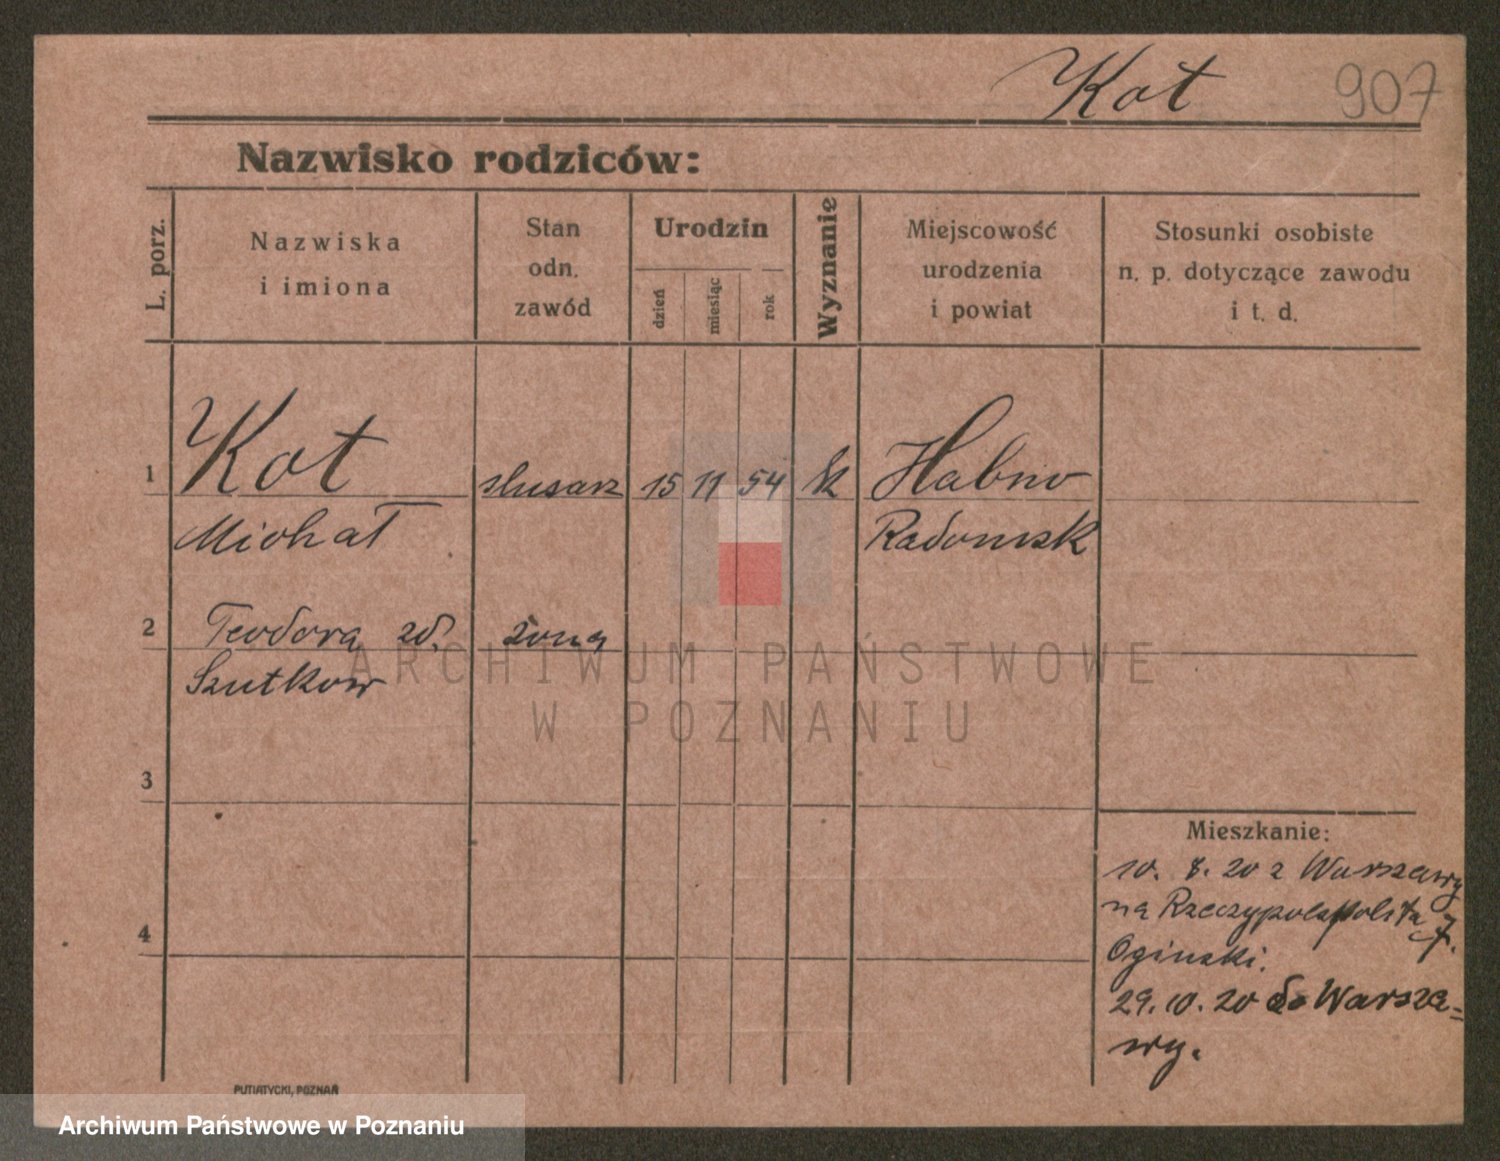 Kot 907
Nazwisko rodziców:
L. porz.
Nazwiska
i imiona
Stan
odn.
zawód
Urodzin
dzień
miesiąc
rok
Wyznanie
Miejscowość
urodzenia
i powiat
Stosunki osobiste
n. p. dotyczące zawodu
i t. d.
1 Kot ślusarz 15 11 54 k Habno
Michał Radomsk
2 Teodora zd. żona
Szutkow
3
4
Mieszkanie:
10. 8. 20 z Warszawy
na Rzeczypospolita 7.
Oginski.
29. 10. 20 do Warsza=
wy.
PUTIATYCKI, POZNAŃ
ARCHIWUM PAŃSTWOWE
W POZNANIU
Archiwum Państwowe w Poznaniu